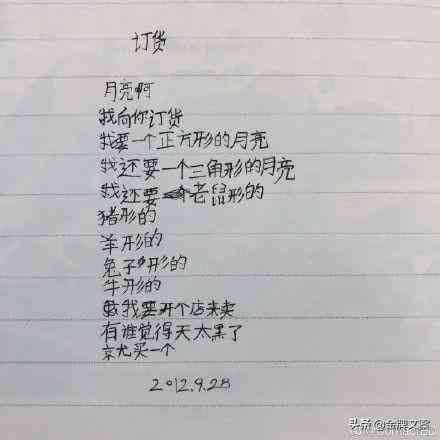 订货
月亮啊
我向你订货
我要一个正方形的月亮
我还要一个三角形的月亮
我还要一个老鼠形的
猪形的
羊形的
兔子形的
牛形的
我要开个店来卖
有谁觉得天太黑了
就买一个
2012.9.28
头条@金牌文案